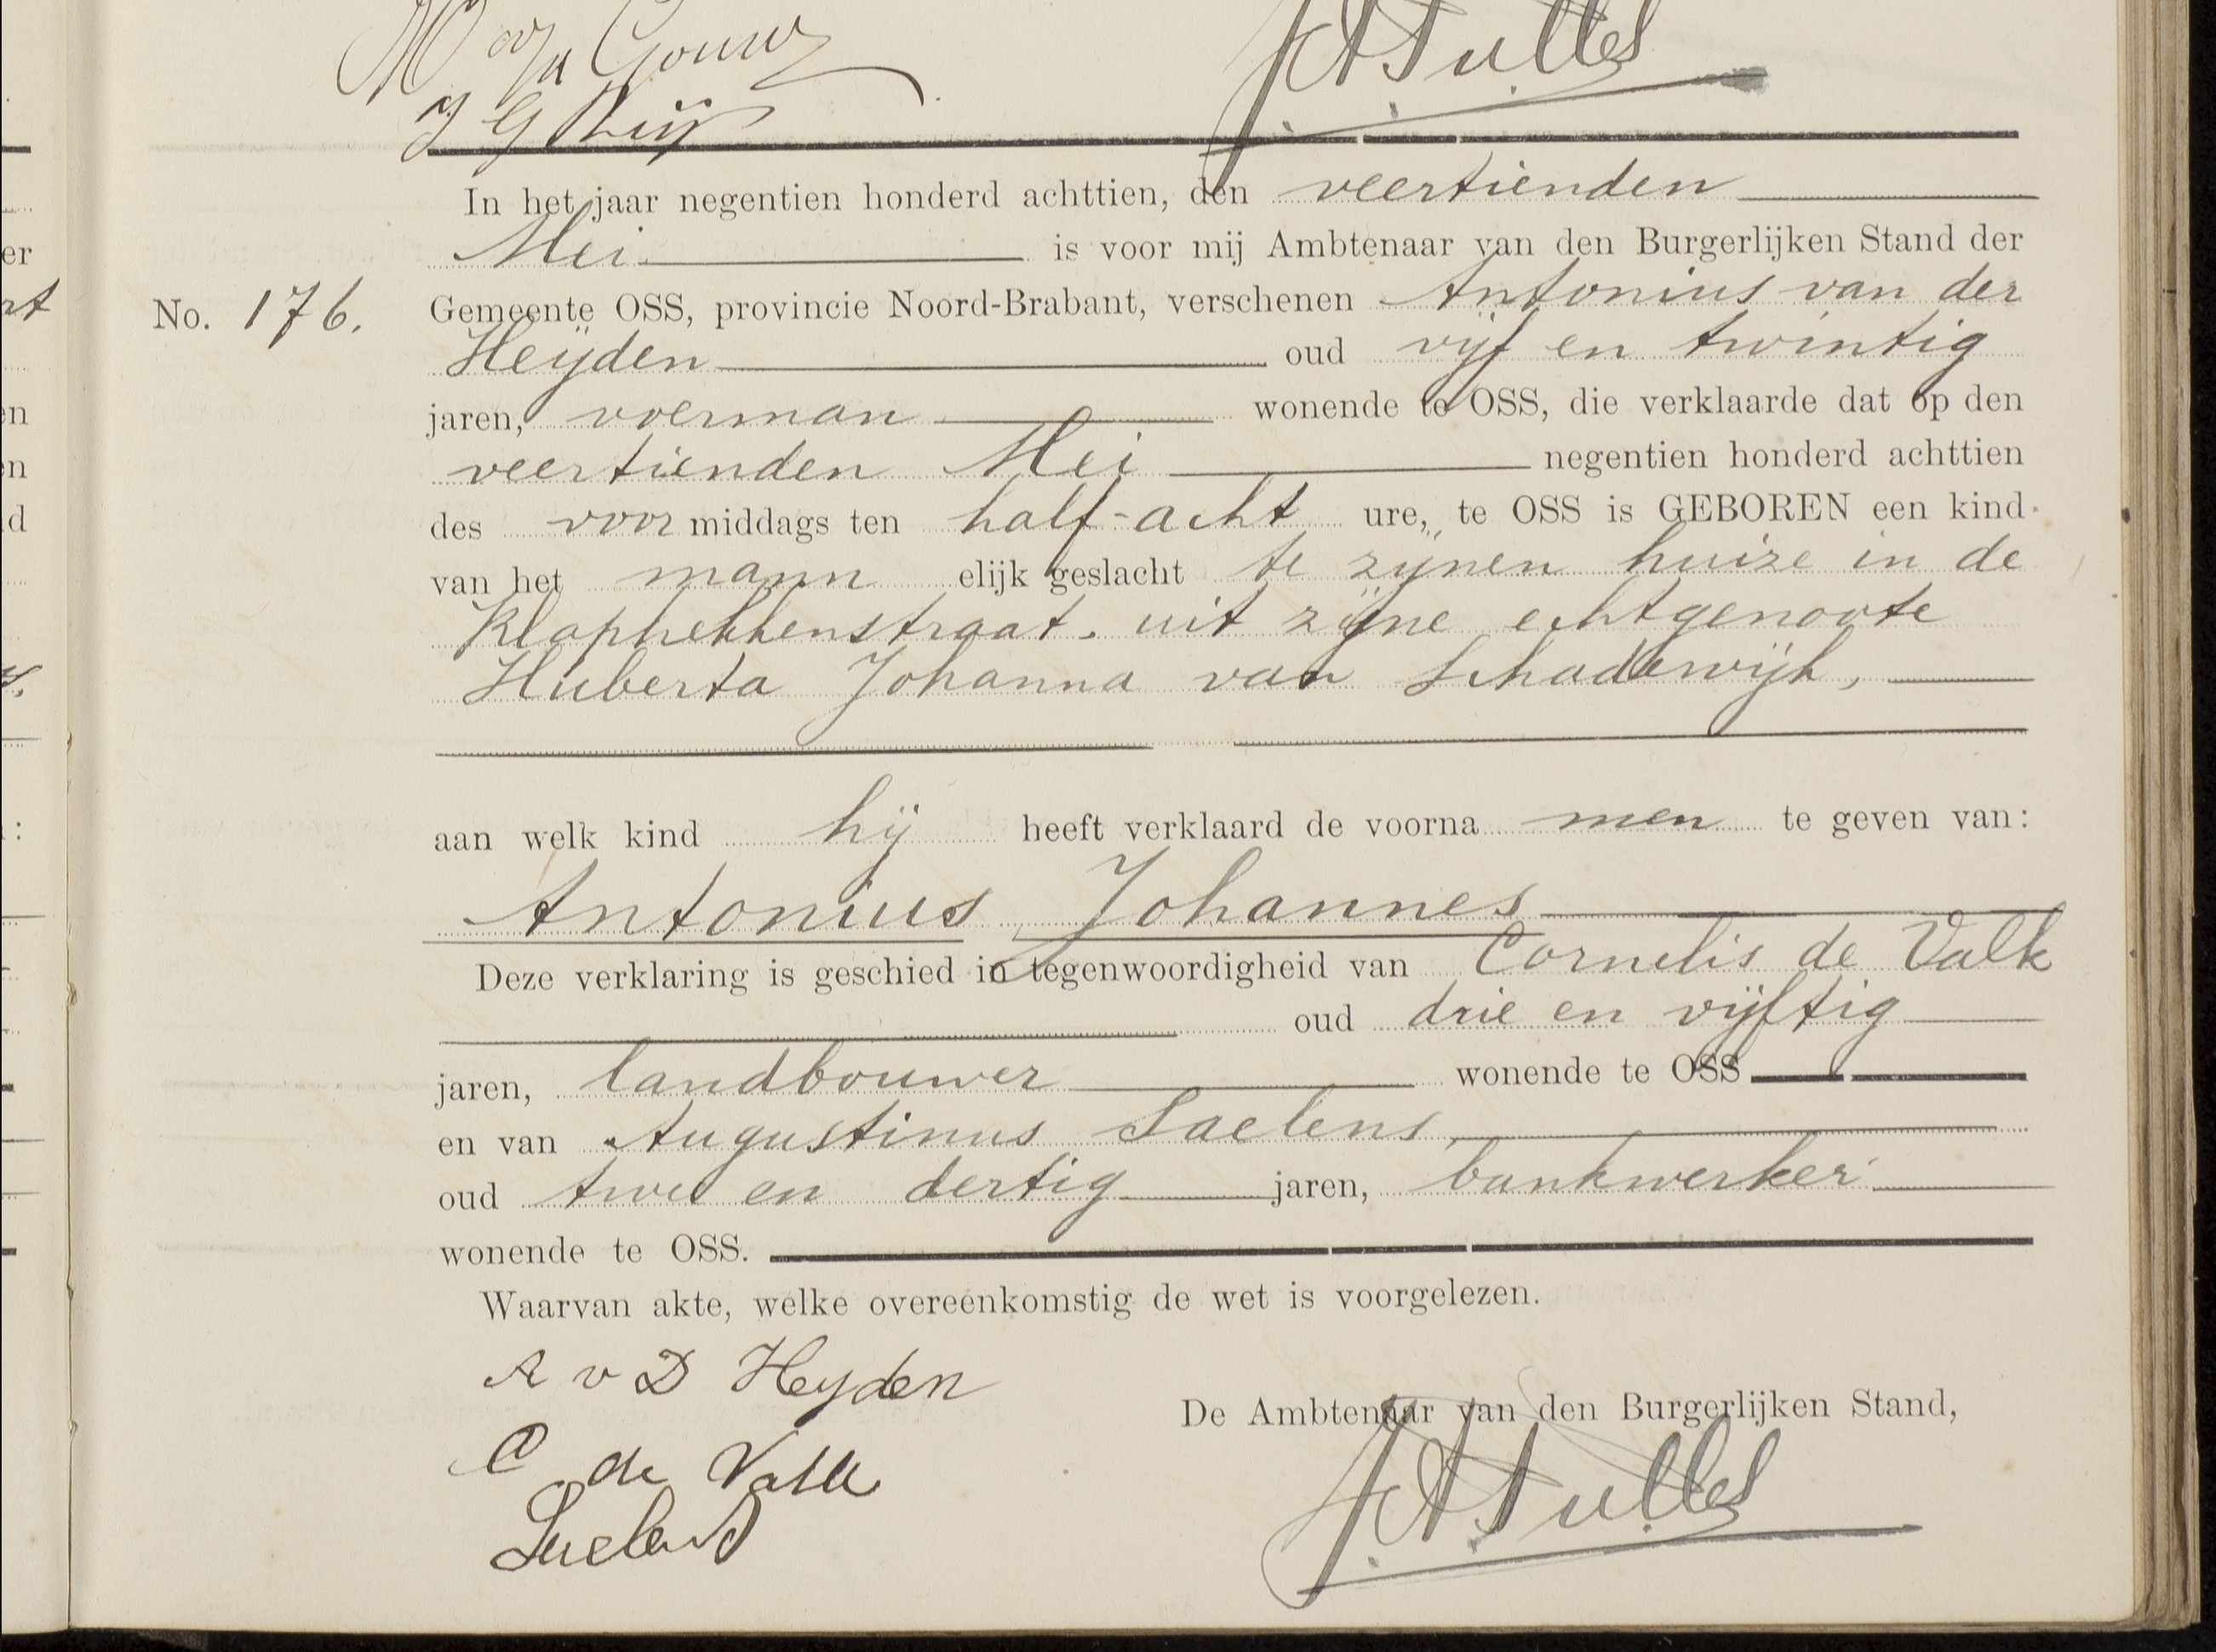 er
No. 176.
In het jaar negentien honderd achttien, den veertienden
Mei is voor mij Ambtenaar van den Burgerlijken Stand der
Gemeente OSS, provincie Noord-Brabant, verschenen Antonius van der
Heijden oud vijf en twintig
jaren, voerman wonende te OSS, die verklaarde dat op den
veertienden Mei negentien honderd achttien
des voor middags ten half-acht ure, te OSS is GEBOREN een kind
van het mann elijk geslacht te zijnen huize in de
Klaphekkenstraat. uit zijne echtgenoote
Huberta Johanna van Schadewijk,
aan welk kind hij heeft verklaard de voorna men te geven van:
Antonius Johannes
Deze verklaring is geschied in tegenwoordigheid van Cornelis de Valk
oud drie en vijftig
jaren, landbouwer wonende te OSS
en van Augustinus Saelens,
oud twee en dertig jaren, bankwerker
wonende te OSS.
Waarvan akte, welke overeenkomstig de wet is voorgelezen.
A v D Heyden
De Ambtenaar van den Burgerlijken Stand,
C de Valk
Saelens